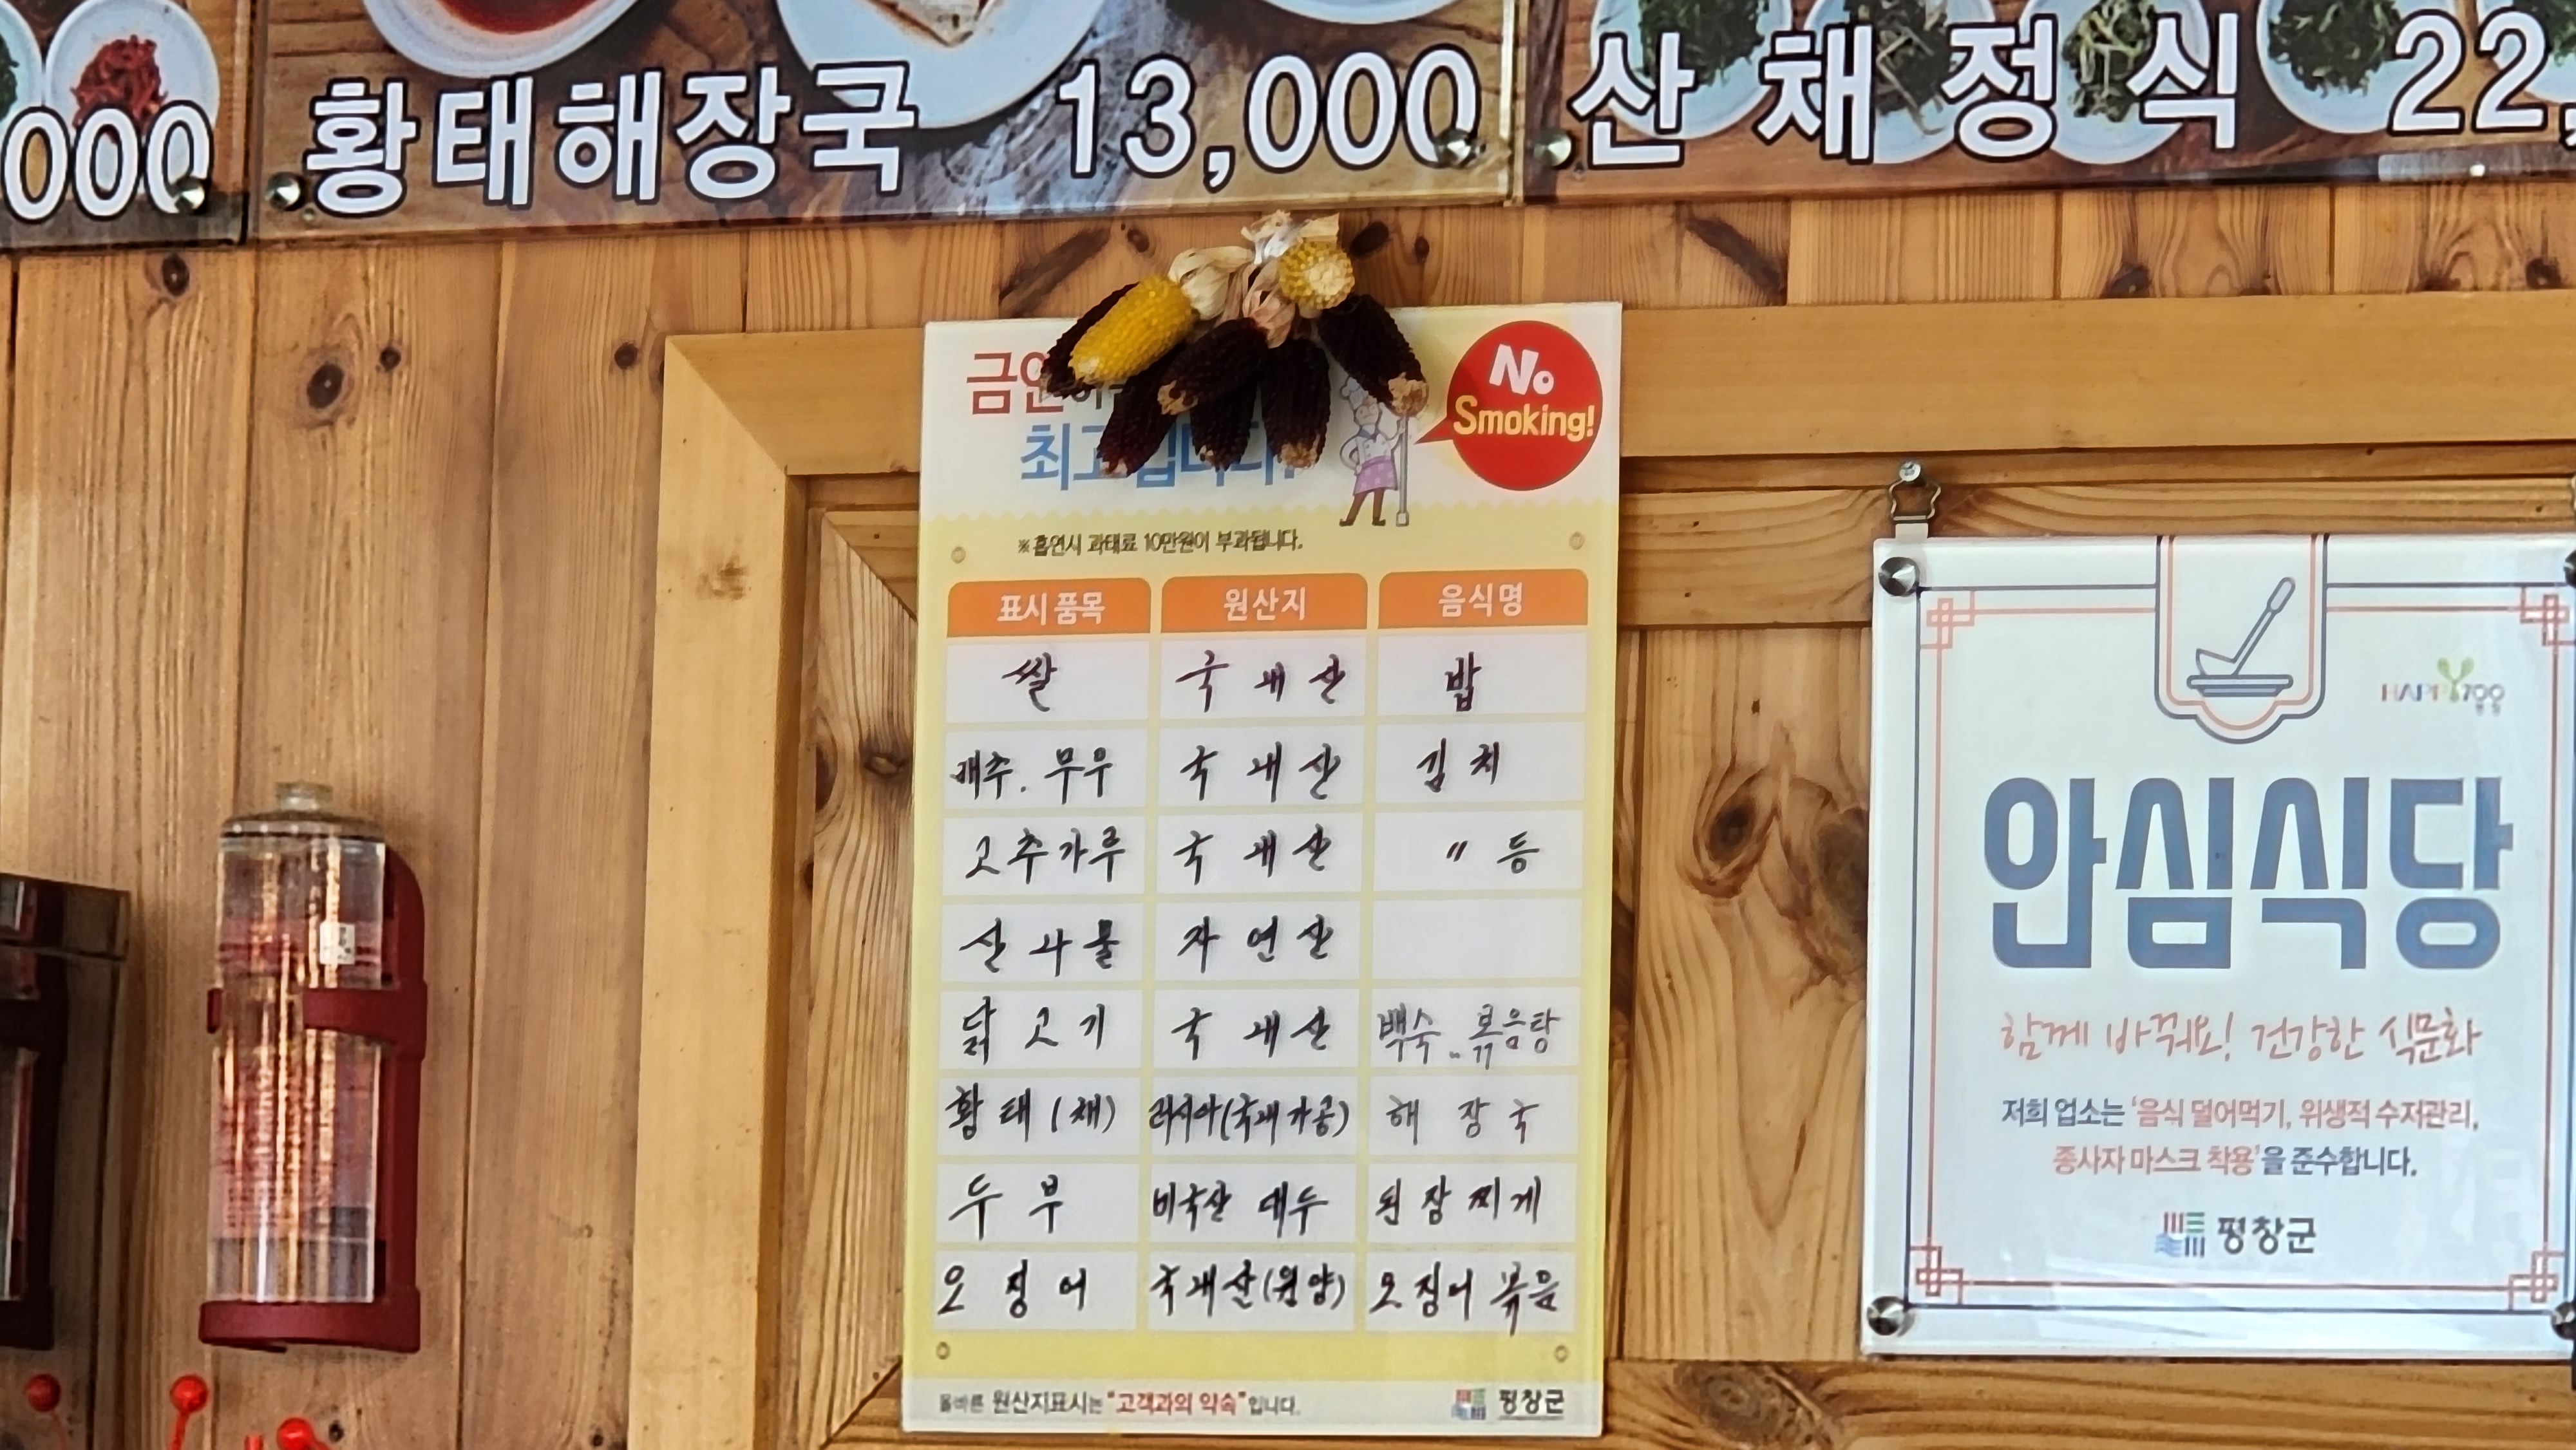 000
황태해장국 13,000
산채정식 22,
금연
최고입니다!
No
Smoking!
※흡연시 과태료 10만원이 부과됩니다.
표시 품목 원산지 음식명
쌀 국내산 밥
배추. 무우 국내산 김치
고추가루 국내산 〃 등
산나물 자연산
닭고기 국내산 백숙.. 볶음탕
황태(채) 러시아(국내가공) 해장국
두부 미국산 대두 된장찌게
오징어 국내산(원양) 오징어볶음
올바른 원산지표시는 "고객과의 약속"입니다.
평창군
HAPPY700
평창
안심식당
함께 바꿔요! 건강한 식문화
저희 업소는 '음식 덜어먹기, 위생적 수저관리,
종사자 마스크 착용'을 준수합니다.
평창군